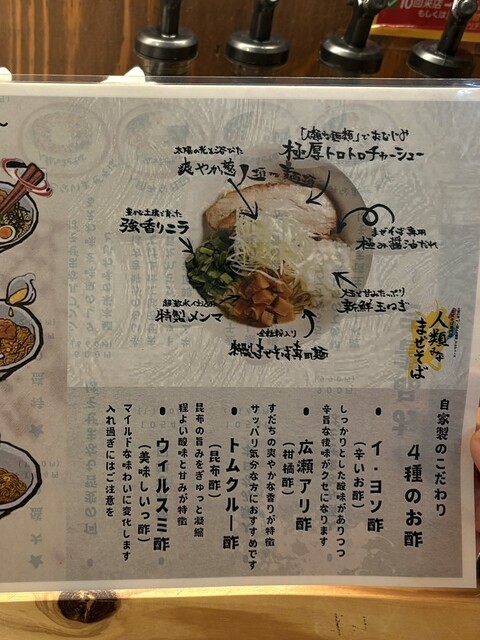 10回来店
もしくは
「人類みな麺類」でおなじみ
極厚トロトロチャーシュー
太陽の光を浴びた
爽やか葱
まぜそば専用
極み醤油だれ
豊かな土壌で育った
強香りニラ
特製メンマ
甘みたっぷり
新鮮玉ねぎ
全粒粉入り
特製まぜそば専用麺
人類みな
まぜそば
自家製のこだわり
4種のお酢
• イ・ヨソ酢
(辛いお酢)
しっかりとした酸味がありつつ
辛旨な後味がクセになります
• 広瀬アリ酢
(柑橘酢)
すだちの爽やかな香りが特徴
サッパリ気分な方におすすめです
• トムクルー酢
(昆布酢)
昆布の旨みをぎゅっと凝縮
程よい酸味と甘みが特徴
• ウィルスミ酢
(美味しいっ酢)
マイルドな味わいに変化します
入れ過ぎにはご注意を